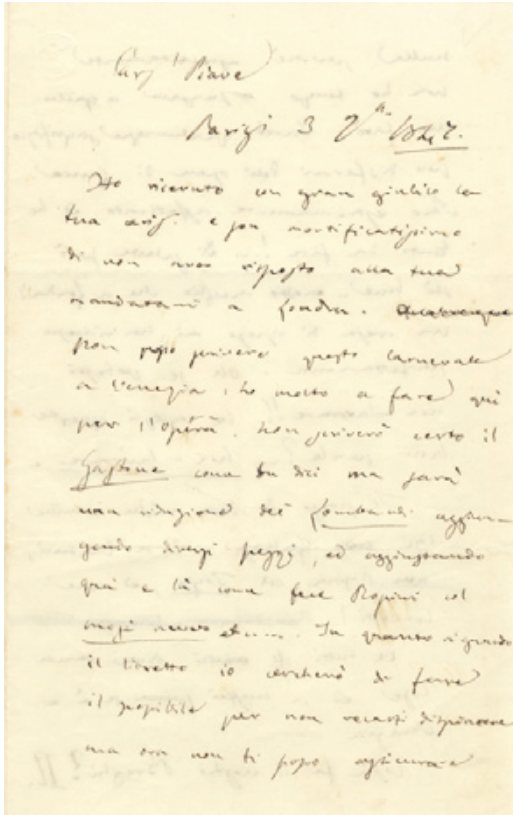 Caro Piave
Parigi 3 7bre 1847.
Ho ricevuto con gran giubilo la
tua e son mortificatissimo
di non aver risposto alla tua
mandatami a Londra.
Non posso scrivere questo Carnevale
a Venezia: ho molto a fare qui
per l'opéra. Non scriverò certo il
Gastone come tu dici ma sarà
una riduzione dei Lombardi aggiun-
gendo diversi pezzi, ed aggiustando
qua e là come fece Rossini col
mosé nuovo In quanto riguardo
il libretto io cercherò di fare
il possibile per non recarti dispiacere
ma ora non ti posso assicurare